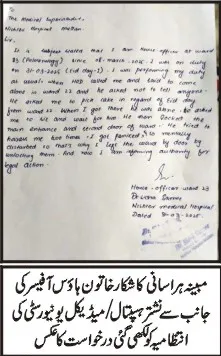 The Medical Superintendent,
Nishtar Hospital Multan
Sir,
It is stated that I am house officer at ward
23 (Pulmonology) since of march 2025. I was on duty
on 31-03-2025 (Eid day-1). I was performing my duty
as usual when called me and said to come
alone in ward 22 and he asked not to tell anyone.
He asked me to pick cake in regard of Eid day
from ward 22. When I got there he was alone. He asked
me to sit and wait for two. He then locked the
main entrance and second door of ward. He tried to
harass me two times. I got panicked & so mentally
disturbed so that's why I left the ward by door by
unlocking them. And now I am informing authority for
legal action.
House officer ward 23
Nishtar medical Hospital
Dated
مبینہ ہراسانی کا شکار خاتون ہاؤس آفیسر کی
جانب سے نشتر ہسپتال/میڈیکل یونیورسٹی کی
انتظامیہ کو لکھی گئی درخواست کا عکس